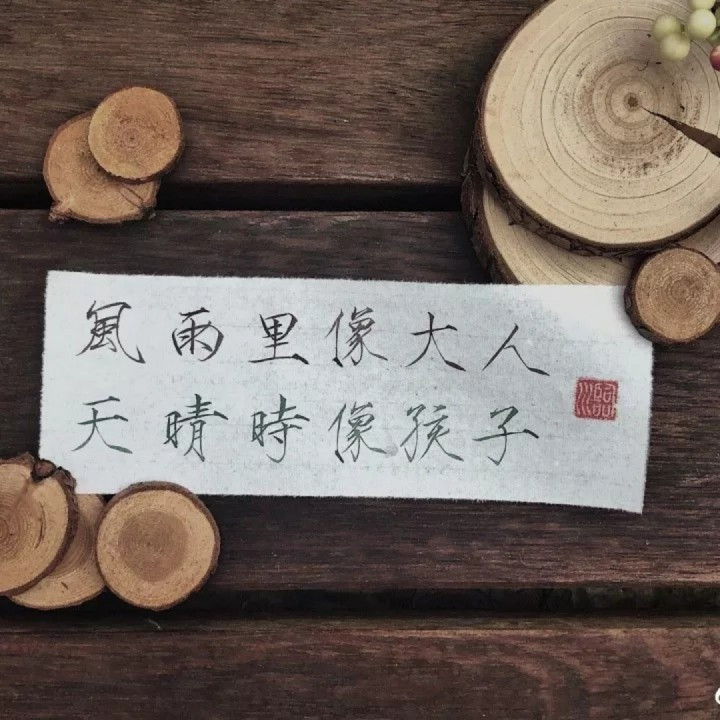 風雨里像大人
天晴時像孩子